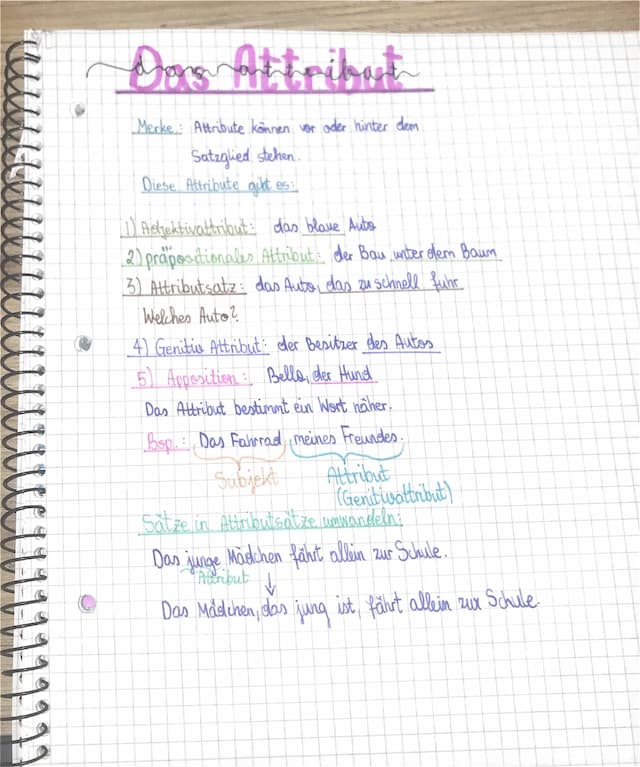 Das Attribut
das attribut
Merke: Attribute können vor oder hinter dem
Satzglied stehen.
Diese Attribute gibt es:
1) Adjektivattribut: das blaue Auto
2) präpositionales Attribut: der Bau unter dem Baum
3) Attributsatz: das Auto, das zu schnell fuhr
Welches Auto?
4) Genitiv Attribut: der Besitzer des Autos
5) Apposition: Bello, der Hund
Das Attribut bestimmt ein Wort näher.
Bsp.: Das Fahrrad meines Freundes.
Subjekt Attribut
(Genitivattribut)
Sätze in Attributsätze umwandeln:
Das junge Mädchen fährt allein zur Schule.
Attribut
↓
Das Mädchen, das jung ist, fährt allein zur Schule.